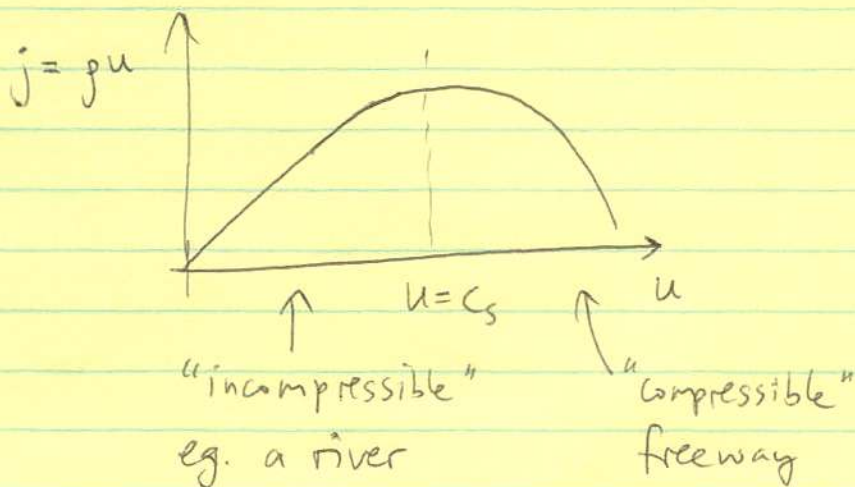 j = ρu
u = cₛ
u
"incompressible"
eg. a river
"compressible"
freeway